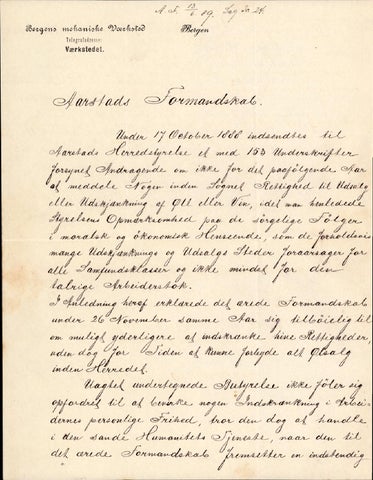 A. F. 13/6 89. Sag No 24.
Bergens mekaniske Værksted
Telegrafadresse:
Værkstedet.
Bergen
Aarstads Formandskab.
Under 17 October 1888 indsendtes til
Aarstads Herredstyrelse et med 153 Underskrifter
forsynet Andragende om ikke for det paafølgende Aar
at meddele Nogen inden Sognet Rettighed til Udsalg
eller Udskjænkning af Øll eller Vin, idet man henledede
Styrelsens Opmærksomhed paa de sørgelige Følger
i moralsk og økonomisk Henseende, som de forholdsvis
mange Udskjænknings og Udsalgs Steder foraarsager for
alle Samfundsklasser og ikke mindst for den
talrige Arbeiderstok.
I Anledning heraf erklærede det ærede Formandskab
under 26 November samme Aar sig tilbøielig til
om muligt yderligere at indskrænke hine Rettigheder,
uden dog for Tiden at kunne forbyde alt Ølsalg
inden Herredet.
Uagtet undertegnede Bestyrelse ikke føler sig
opfordret til at bevirke nogen Indskrænkning i Arbei-
dernes personlige Frihed, tror den dog at handle
i den sande Humanitets Tjeneste, naar den til
det ærede Formandskab fremsetter en indstendig